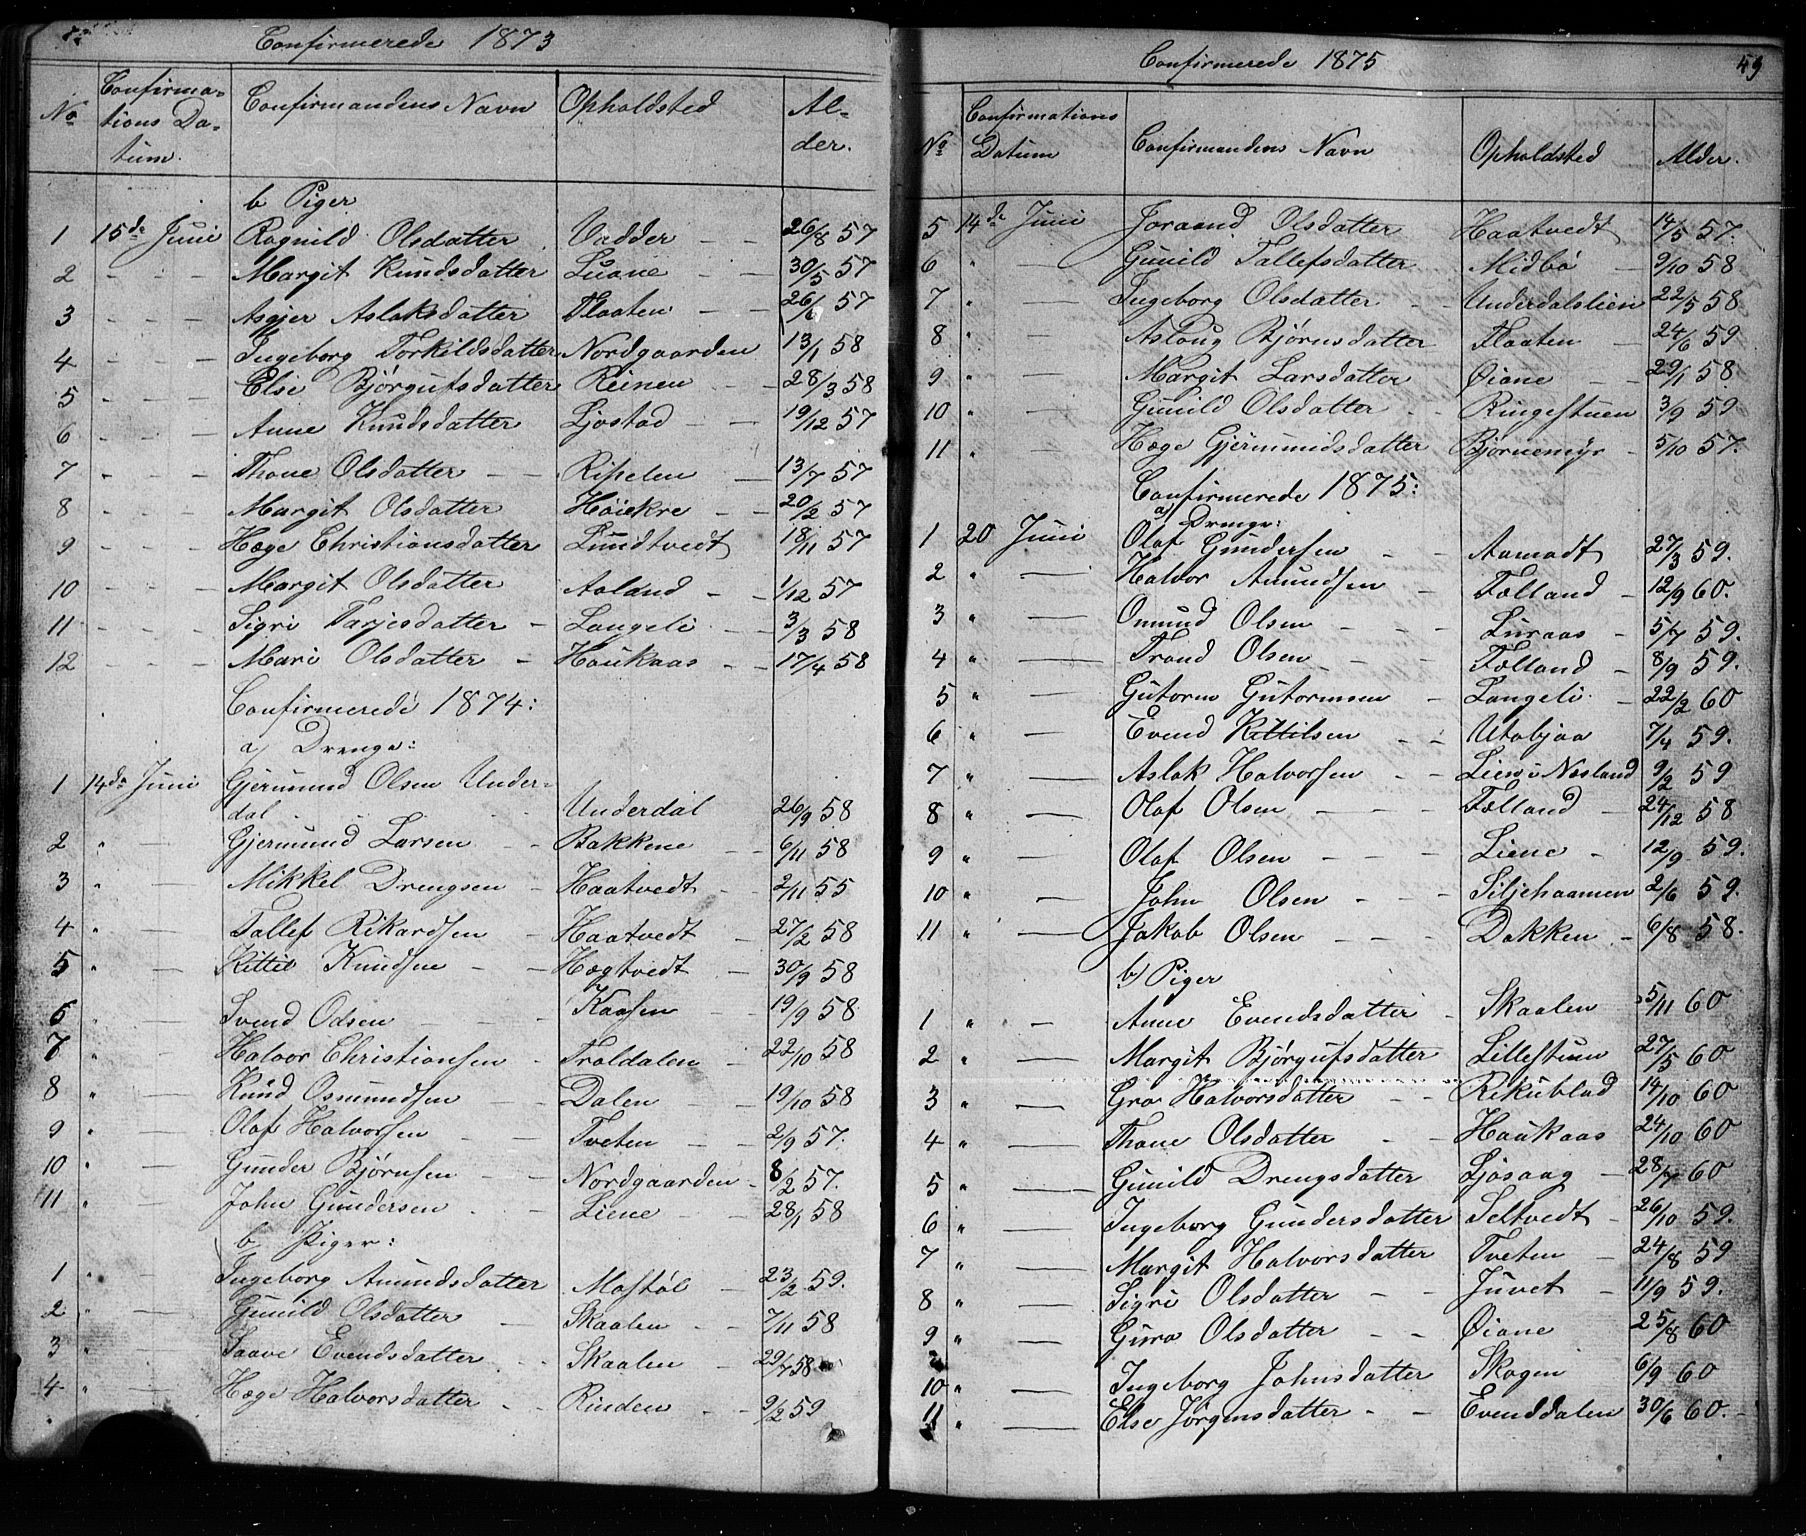 Confirmerede 1873
No Confirmations Datum. Confirmandens Navn Opholdsted Alder.
b Piger
1 15de Juni Ragnild Olsdatter Vadder 26/8 57
2 Margit Knudsdatter Luane 30/5 57
3 Asgjer Aslaksdatter Flaaten 26/6 57
4 Ingeborg Torkildsdatter Nordgaarden 13/1 58
5 Else Bjørgufsdatter Reinen 28/3 58
6 Anne Knudsdatter Ljostad 19/12 57
7 Thone Olsdatter Ripelen 13/7 57
8 Margit Olsdatter Høiekre 20/2 57
9 Hæge Christiansdatter Lundtvedt 18/11 57
10 Margit Olsdatter Aaland 1/12 57
11 Sigri Tarjesdatter Langeli 3/3 58
12 Mari Olsdatter Haukaas 17/4 58
Confirmerede 1874:
a) Drenge:
1 14de Juni Gjermund Olsen Under-
dal Underdal 26/9 58
2 " Gjermund Larsen Bakkene 6/11 58
3 " Mikkel Drengsen Haatvedt 2/11 55
4 " Tallef Rikardsen Haatvedt 27/2 58
5 " Kittil Knudsen Hægtvedt 30/9 58
6 " Svend Odsen Kaasen 19/9 58
7 " Halvor Christiansen Troldalen 22/10 58
8 " Knud Osmundsen Dalen 19/10 58
9 " Olaf Halvorsen Tveten 2/9 57.
10 " Gunder Bjørnsen Nordgaarden 8/2 57.
11 " John Gundersen Liene 28/1 58
b Piger:
1 " Ingeborg Amundsdatter Mostøl 23/2 59.
2 " Gunild Olsdatter Skaalen 7/11 58
3 " Saave Evendsdatter Skaalen 29/7 58
4 " Hæge Halvorsdatter Rinden 9/2 59
Confirmerede 1875 49
No Confirmations Datum Confirmandens Navn Opholdsted Alder.
5 14de Juni Joraand Olsdatter Haatvedt 14/5 57.
6 " Gunild Tallefsdatter Midbö 9/10 58
7 " Ingeborg Olsdatter Underdalslien 22/5 58
8 " Aslaug Bjørnsdatter Flaaten 24/6 59
9 " Margit Larsdatter Øiane 29/1 58.
10 " Gunild Olsdatter Ringestuen 3/9 59
11 " Hæge Gjermundsdatter Bjørnemyr 5/10 57.
Confirmerede 1875:
a) Drenge:
1 20 Juni Olaf Gundersen Aamodt 27/3 59.
2 " Halvor Amundsen Fælland 12/9 60.
3 " Omund Olsen Luraas 5/7 59.
4 " Trond Olsen Fælland 8/9 59.
5 " Gutorm Gutormsen Langeli 22/2 60
6 " Evend Kittilsen Utabjaa 7/4 59.
7 " Aslak Halvorsen Lien i Næsland 9/2 59
8 " Olaf Olsen Fælland 24/12 58
9 " Olaf Olsen Liene 12/9 59.
10 " John Olsen Siljehaamen 2/6 59.
11 " Jakob Olsen Dakken 6/8 58.
b) Piger
1 " Anne Evendsdatter Skaalen 5/11 60
2 " Margit Bjørgufsdatter Lillestuen 27/5 60
3 " Gro Halvorsdatter Rikublad 14/10 60
4 " Thone Olsdatter Haukaas 24/10 60
5 " Gunild Drengsdatter Ljosaag 28/7 60
6 " Ingeborg Gundersdatter Seltvedt 26/10 59.
7 " Margit Halvorsdatter Tveten 24/8 59
8 " Sigri Olsdatter Juvet 11/9 59.
9 " Guro Olsdatter Øiane 25/8 60
10 " Ingeborg Johnsdatter Skogen 6/9 60
11 " Else Jørgensdatter Evenddalen 30/6 60.